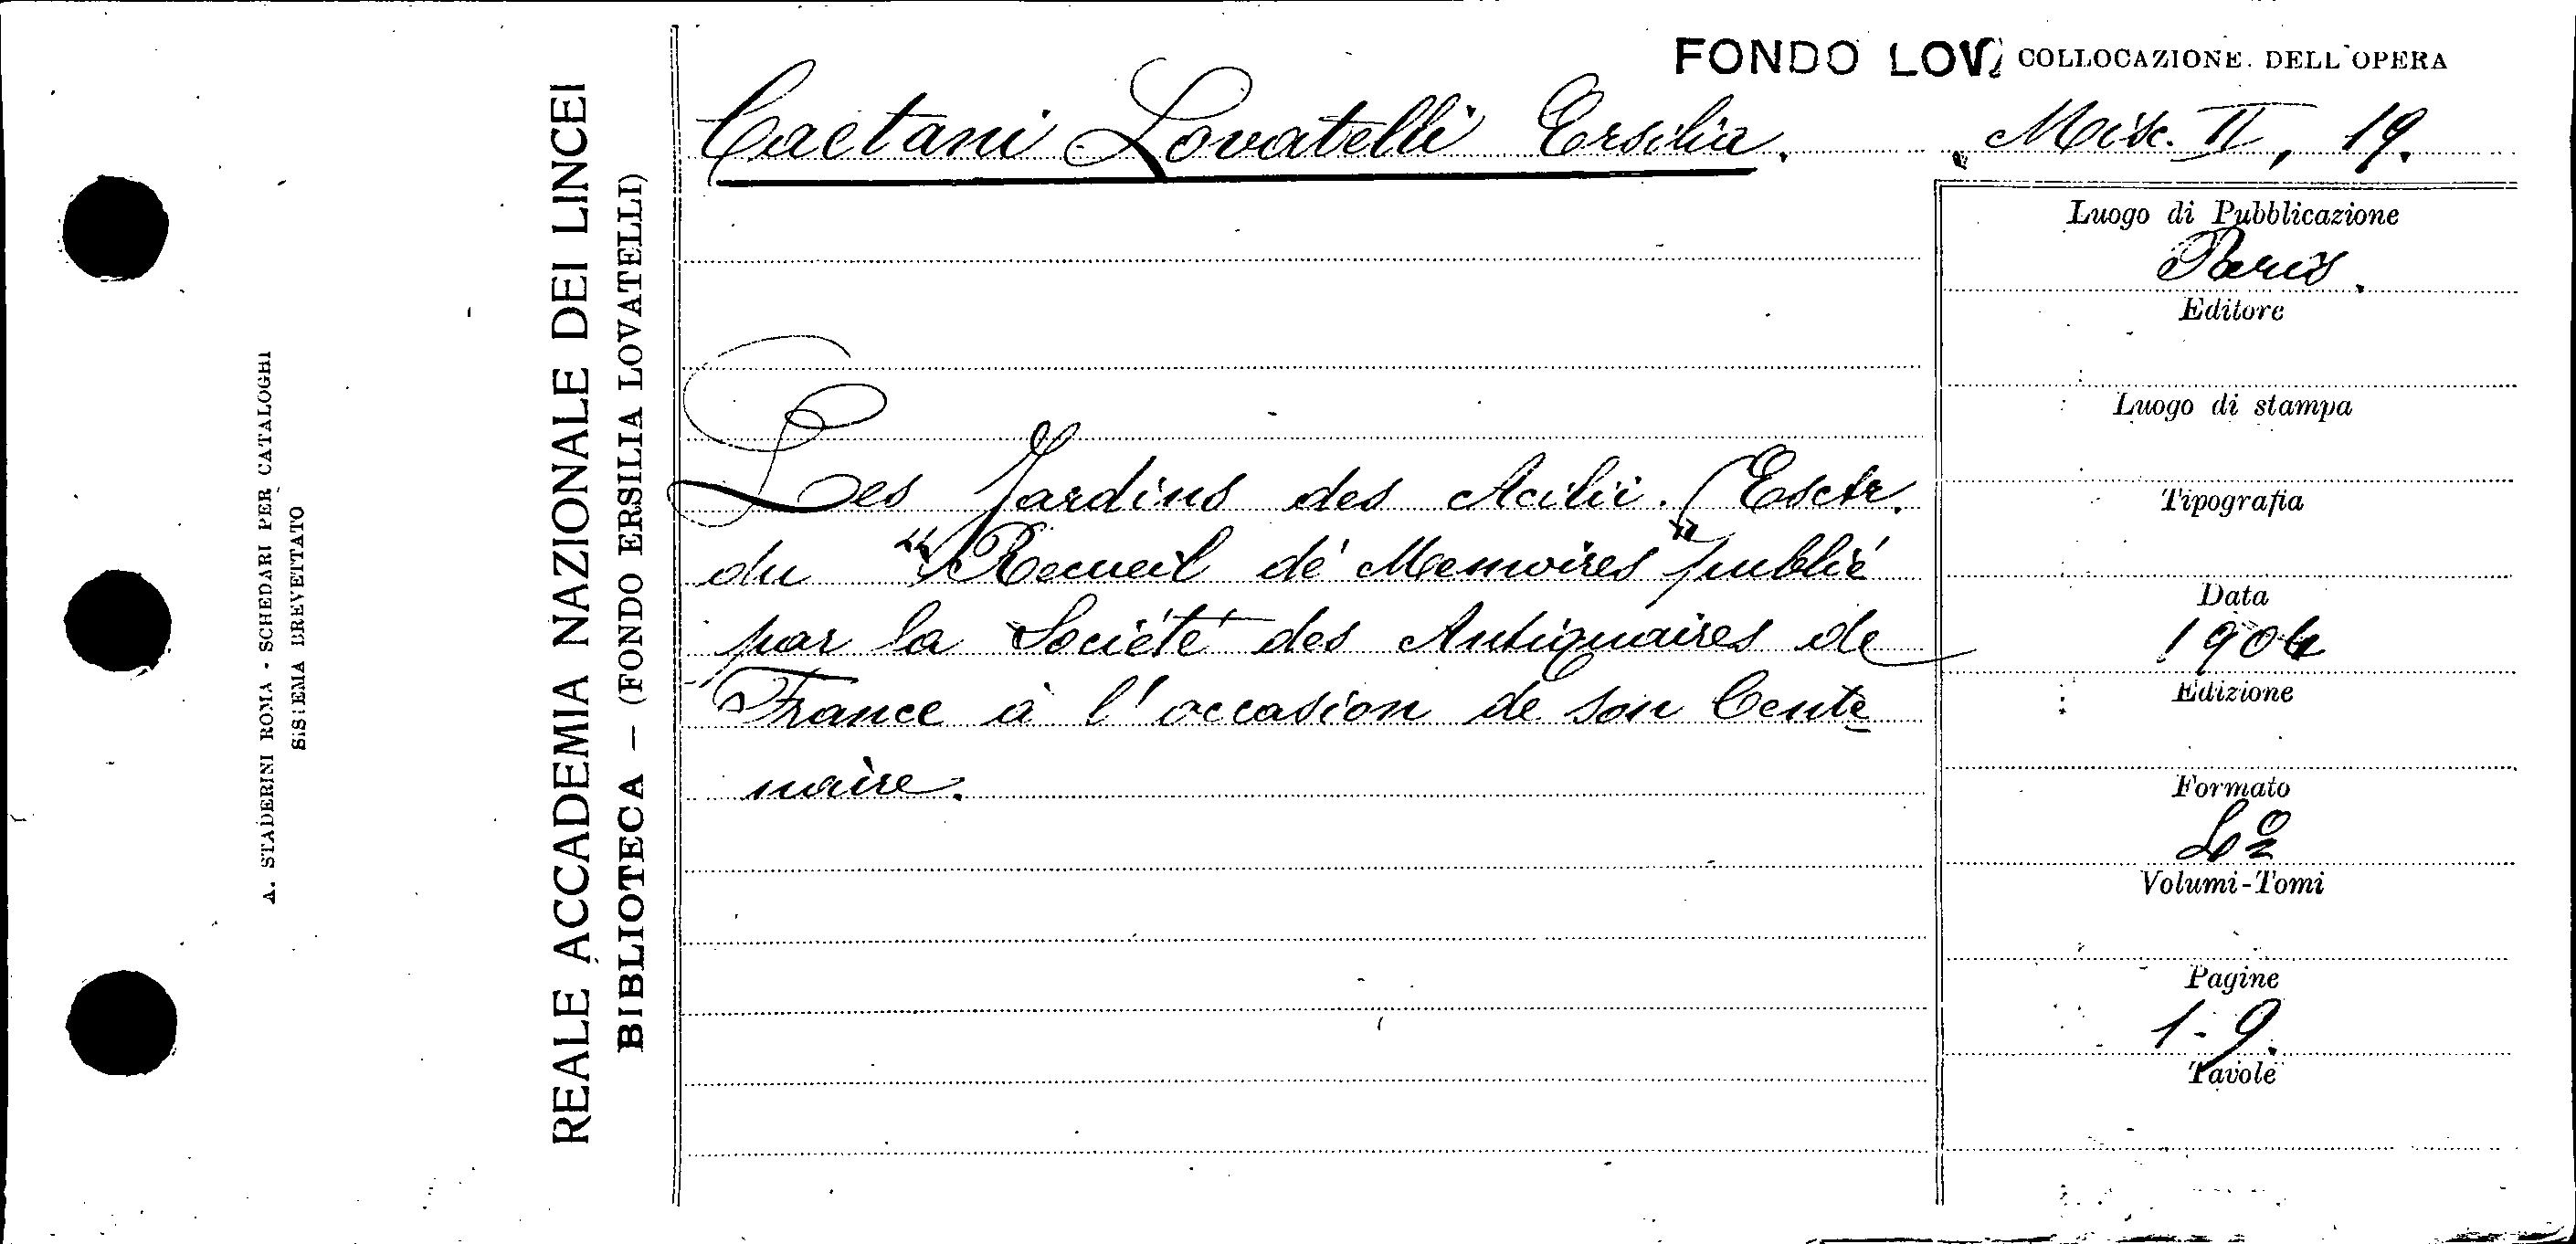 FONDO LOV. COLLOCAZIONE DELL'OPERA
Caetani Lovatelli Ersilia. Misc. II, 19.
Les Jardins des Acilii. (Esctr.
du "Recueil de Memoires" publié
par la Société des Antiquaires de
France à l'occasion de son Cente
naire.
Luogo di Pubblicazione
Paris.
Editore
Luogo di stampa
Tipografia
Data
1904
Edizione
Formato
Volumi-Tomi
Pagine
1-9.
Tavole
REALE ACCADEMIA NAZIONALE DEI LINCEI
BIBLIOTECA — (FONDO ERSILIA LOVATELLI)
A. STADERINI ROMA - SCHEDARI PER CATALOGHI
SISTEMA BREVETTATO